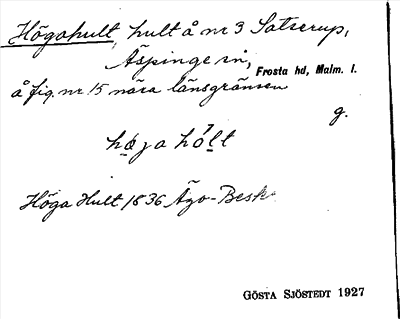 Högahult, hult å nr 3 Satserup,
Äspinge sn, Frosta hd, Malm. l.
å fig. nr 15 nära länsgränsen
g.
høja hólt
Höga Hult 1836 Ägo-Beskr
GÖSTA SJÖSTEDT 1927